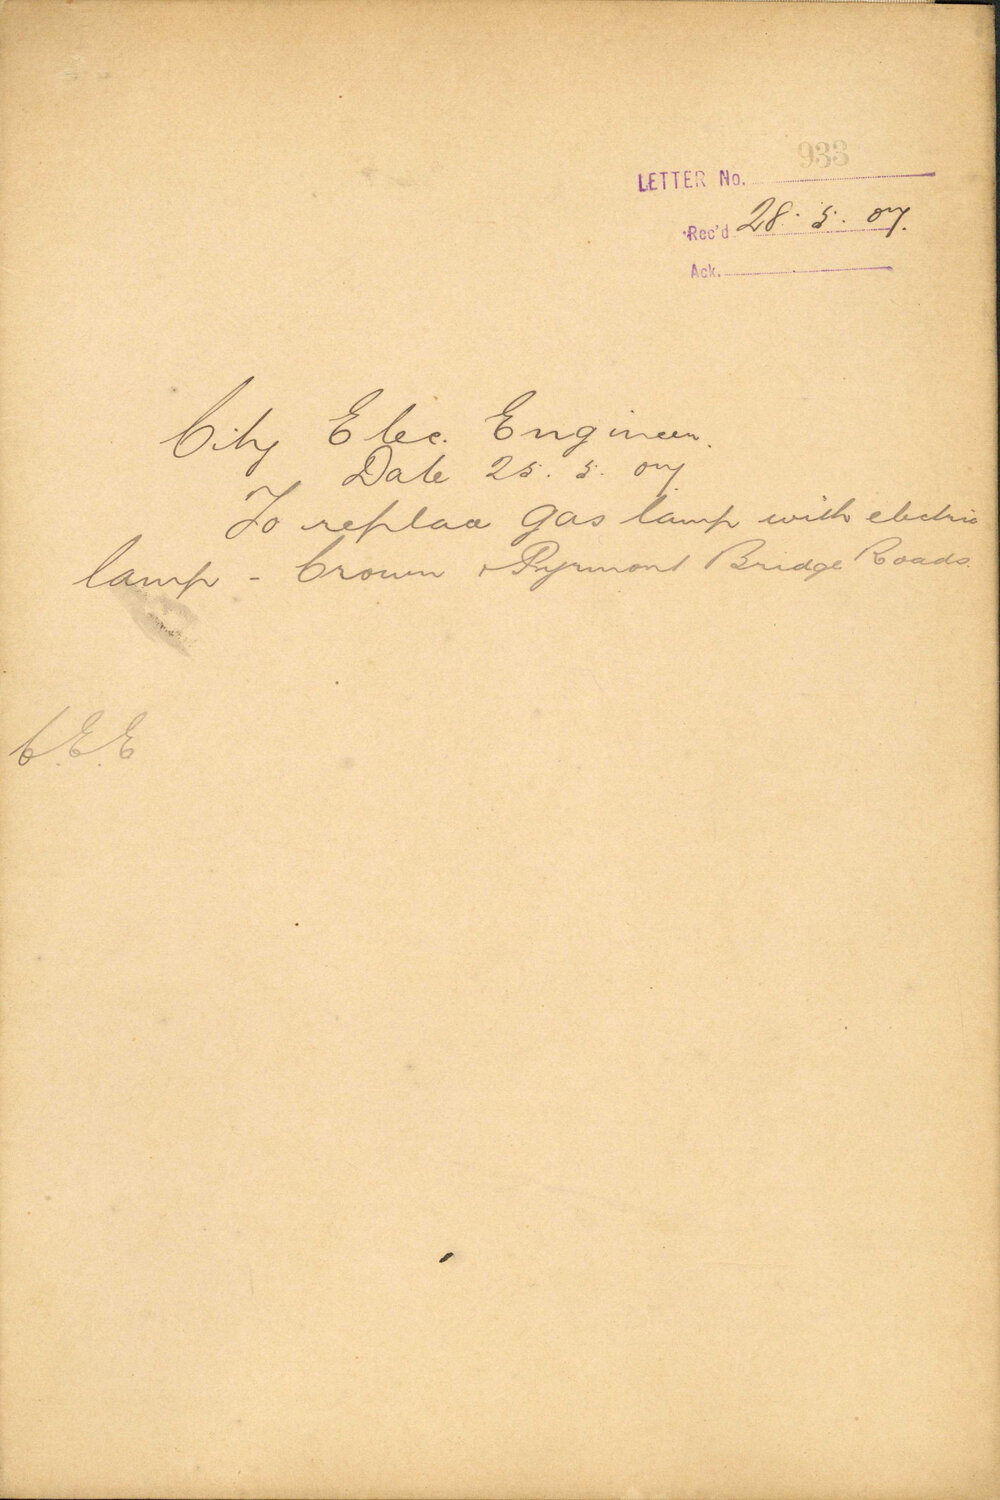 LETTER No. 933
Rec'd 28. 5. 07.
Ack.
City Elec. Engineer.
Date 25. 5. 07
To replace gas lamp with electric
lamp - Crown & Pyrmont Bridge Roads.
C.E.E